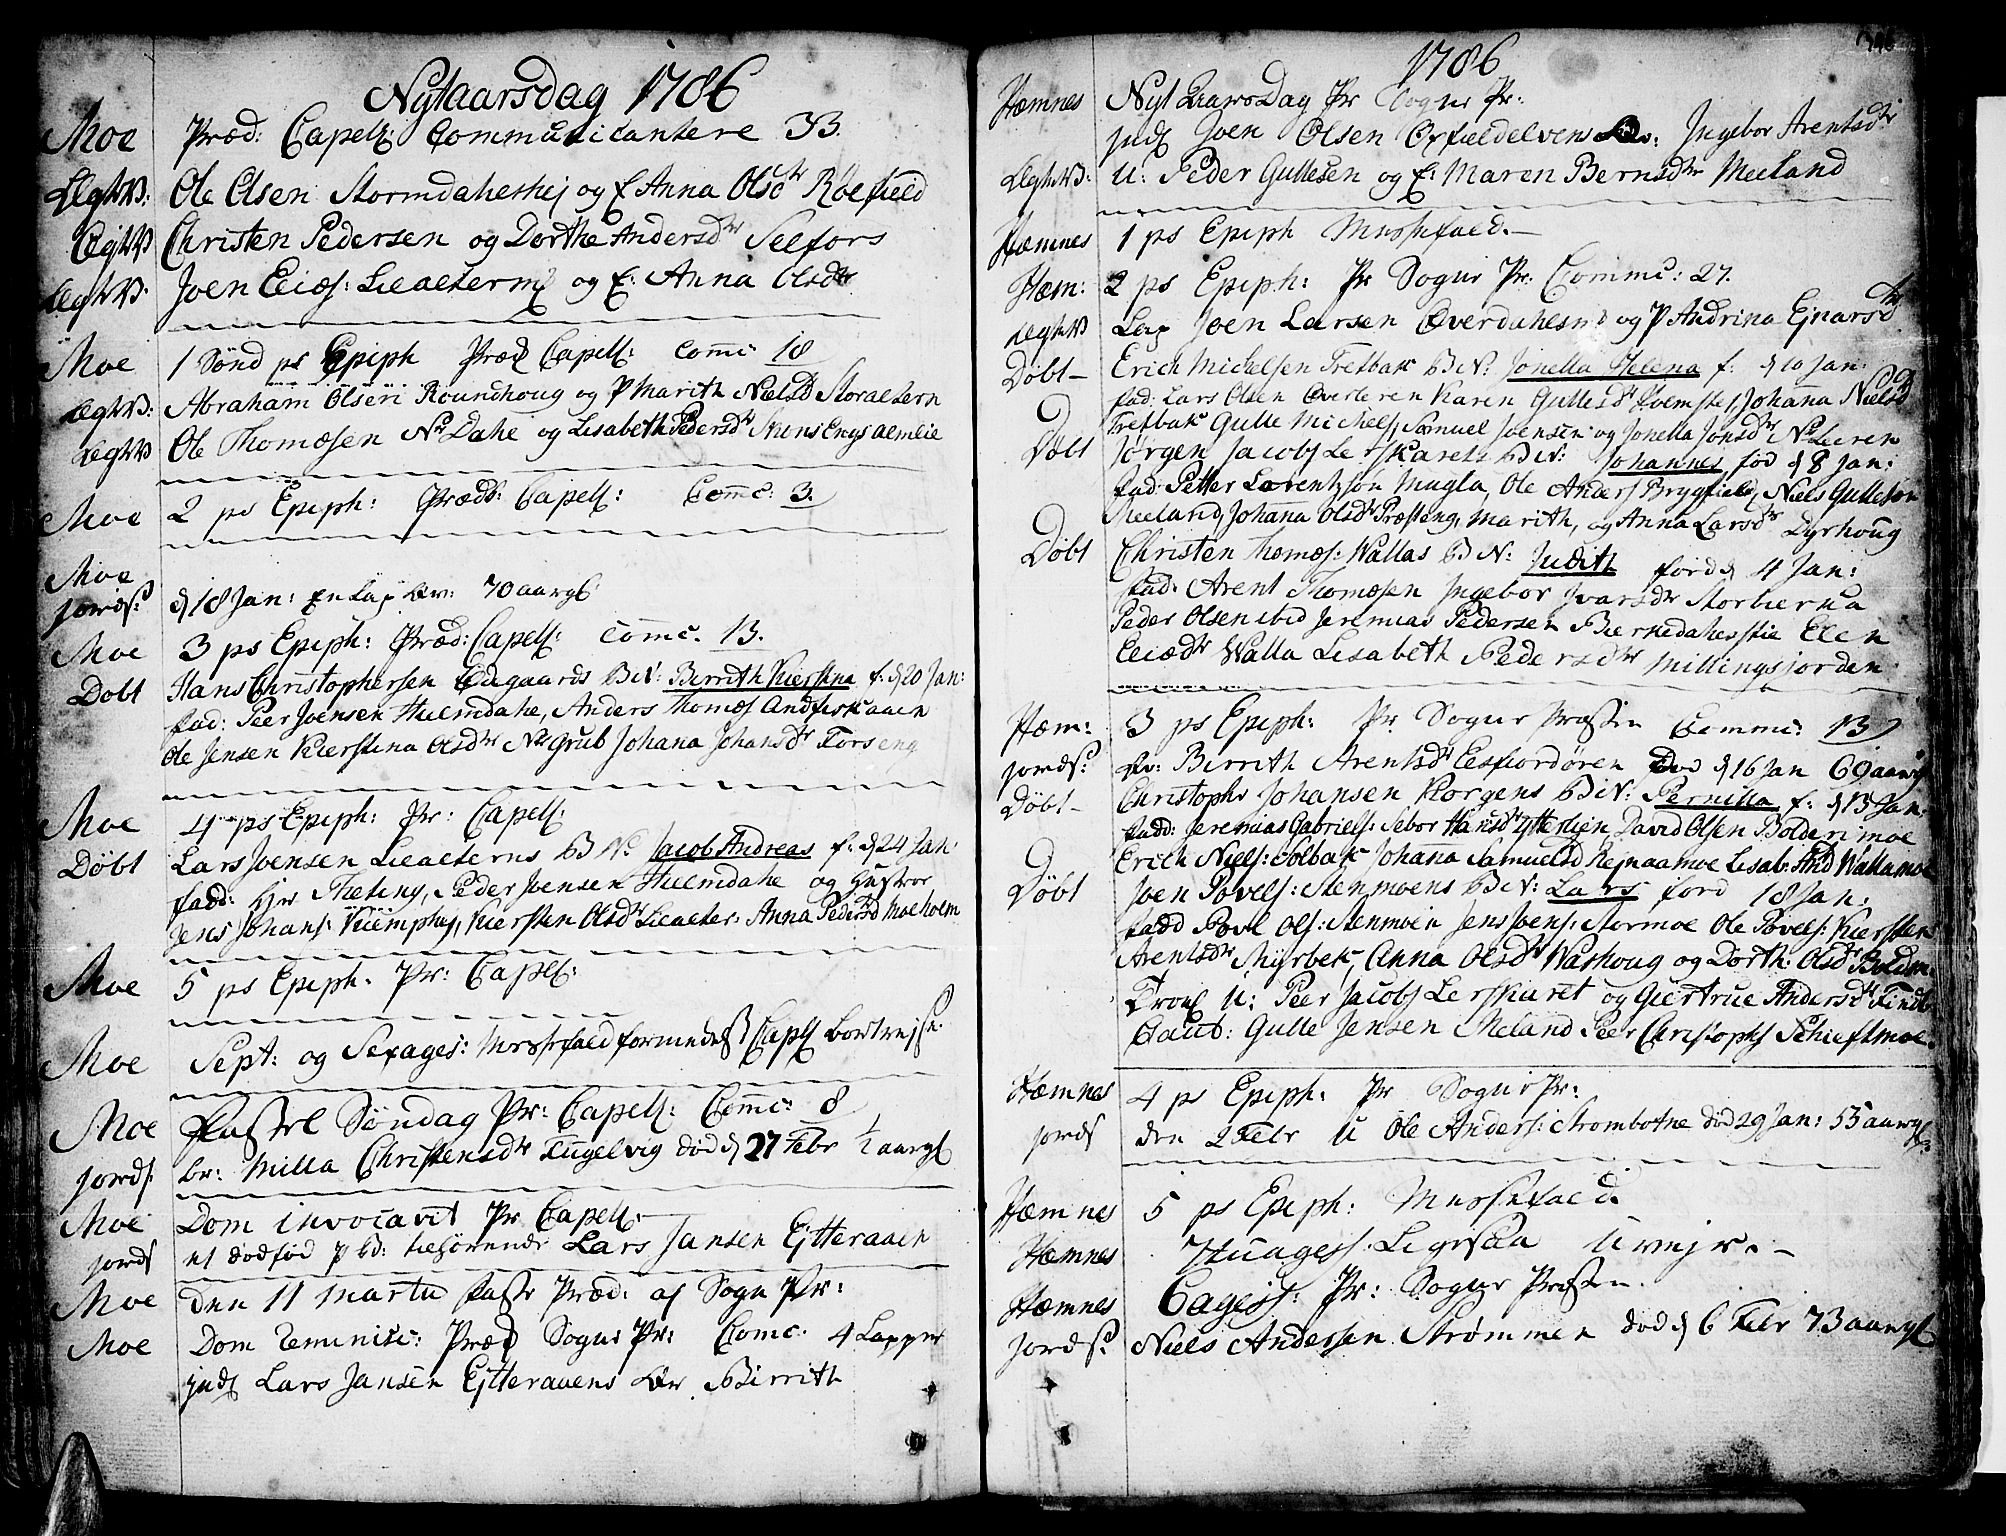 Nytaarsdag 1786
Moe Præd: Capell: Communicantere 33.
Ægt.W: Ole Olsen Stormdaheshej og E Anna Olsdtr Røefield
Ægt.W Christen Pedersen og Dorthe Andersdtr Selfors
Ægt.W. Joen Elias: Lieaetern og E: Anna Olsdtr
Moe 1 Sønd ps Epiph Præd Capell: Comc 18
Ægt.W: Abraham Olsen Roundhoug og P Marith Nielsd Storaetern
Ægt.W Ole Thomæsen Nr Dahe og Lisabeth Pedersdtr
Moe 2 ps Epiph: Præd: Capell: Comc: 3.
Moe
Jords: d 18 Jan: en Lap 70 aarg
Moe 3 ps Epiph: Præd: Capell: Comc. 13.
Døbt Hans Christophersen Ødegaards B N: Berrith Kierstina f: d 20 Jan:
fad: Peer Joensen Hielmdahe, Anders Thomæs Andfiskaaen
Ole Jensen Kierstina Olsdtr Nr Grub Johana Johansdtr Forseng
Moe 4 ps Epiph: Pr: Capell:
Døbt Lars Joensen Lieaeterns B N: Jacob Andreas f: d 24 Jan:
fadd: Hr Peder Joensen Hielmdahe og Hustroe
Jens Johans: Kiemphej, Kiersten Olsdtr Lieaeter: Anna Pedersd Moeholm
Moe 5 ps Epiph. Pr: Capell:
Moe Sept: og Sexages: Messefald formedelst Capell bortrejse.
Moe Faste Søndag Pr: Capell: Comc: 8
Jords: Milla Christensdtr Fugelvig død d 27 Febr 1/2 aarg
Moe Dom invocavit Pr Capell:
Jords et dødfød p bd: tilhørende Lars Jansen Ejtteraaen
Moe Den 11 Martii Faste Præd: af Sogne Pr:
Moe Dom Reminisc: Præd Sogne Pr: Comc. 4 Lapper
Lars Jansen Ejtteraaens Birrith
1786
Hæmnes Nyt Aars Dag Pr Sogne Pr:
Joen Olsen Oxfieldelvens Ingebor Arentsdtr
Ægt.W: U: Peder Gullesen og E: Maren Bernsdtr Meeland
Hæmnes 1 ps Epiph Messefald.
Hæm: 2 ps Epiph: Pr Sogne Pr: Commc: 27.
Ægt.W Lap Joen Larsen Overdahes og P Andrina Ejnarsdtr
Døbt Erich Michelsen Tretbak B N: Jonella Helena f: d 10 Jan:
fad: Lars Olsen Overleren Karen Gullesdtr Johana Nielsd
Tretbak Gulle Michels, Samuel Joensen og Jonella Jonsdtr Nr Leeren
Døbt Jørgen Jacobs Lerskarets B N: Johannes fød d 8 Jan:
fad: Petter Lorentzsøn Mugla, Ole Anders Brygfield, Niels Gullesøn
Meeland, Johana Olsdtr Præsteng, Marith, og Anna Larsdtr Dyrhoug
Døbt Christen Thomæs: Wallas B N: Judith fød d 4 Jan:
fad: Arent Thomæsen Ingebor Ivarsdtr Storbierka
Peder Olsen ibid Jeremias Pedersen Elen
Eliædtr Walla Lisabeth Pedersdtr Millingsjorden
Hæm: 3 ps Epiph: Pr Sogne Præsten Commc: 13
Jords: Birrith Arentsdtr Lesfiordøren død d 16 Jan 69 aarg
Døbt Christophr Johansen Korgens B N: Pernilla f: d 13 Jan:
fadd: Jeremias Gabriels: Sebor Hansdtr Ytterlejn David Olsen Bolderimoe
Erich Niels: Solbak Johana Samuelsd Rejnaamoe Lisab: Wallamoe
Døbt Joen Povels: Stenmoens B N: Lars fød 18 Jan:
fadd Povel Ols: Stenmoen Jens Joens: Stormoe Ole Povels: Kiersten
Arentsdtr Myrbek, Anna Olsdtr Washoug og Dorth: Olsdtr Boldm
Trol U: Peer Jacobs Lerskaret og Giertrue Andersdtr
Caut: Gulle Jensen Meland Peer Christophs Schieftmoe
Hæmnes 4 ps Epiph: Pr Sogne Pr:
Jords den 2 Febr U Ole Anders: Strombotne død 29 Jan: 55 aarg
Hæmnes 5 ps Epiph: Messefald.
Hæmnes Septuages: Ligesaa Uvejr.
Hæmnes Sexages: Pr: Sogne Præsten.
Jords: Niels Andersen Strømmen død d 6 Febr 73 aarg